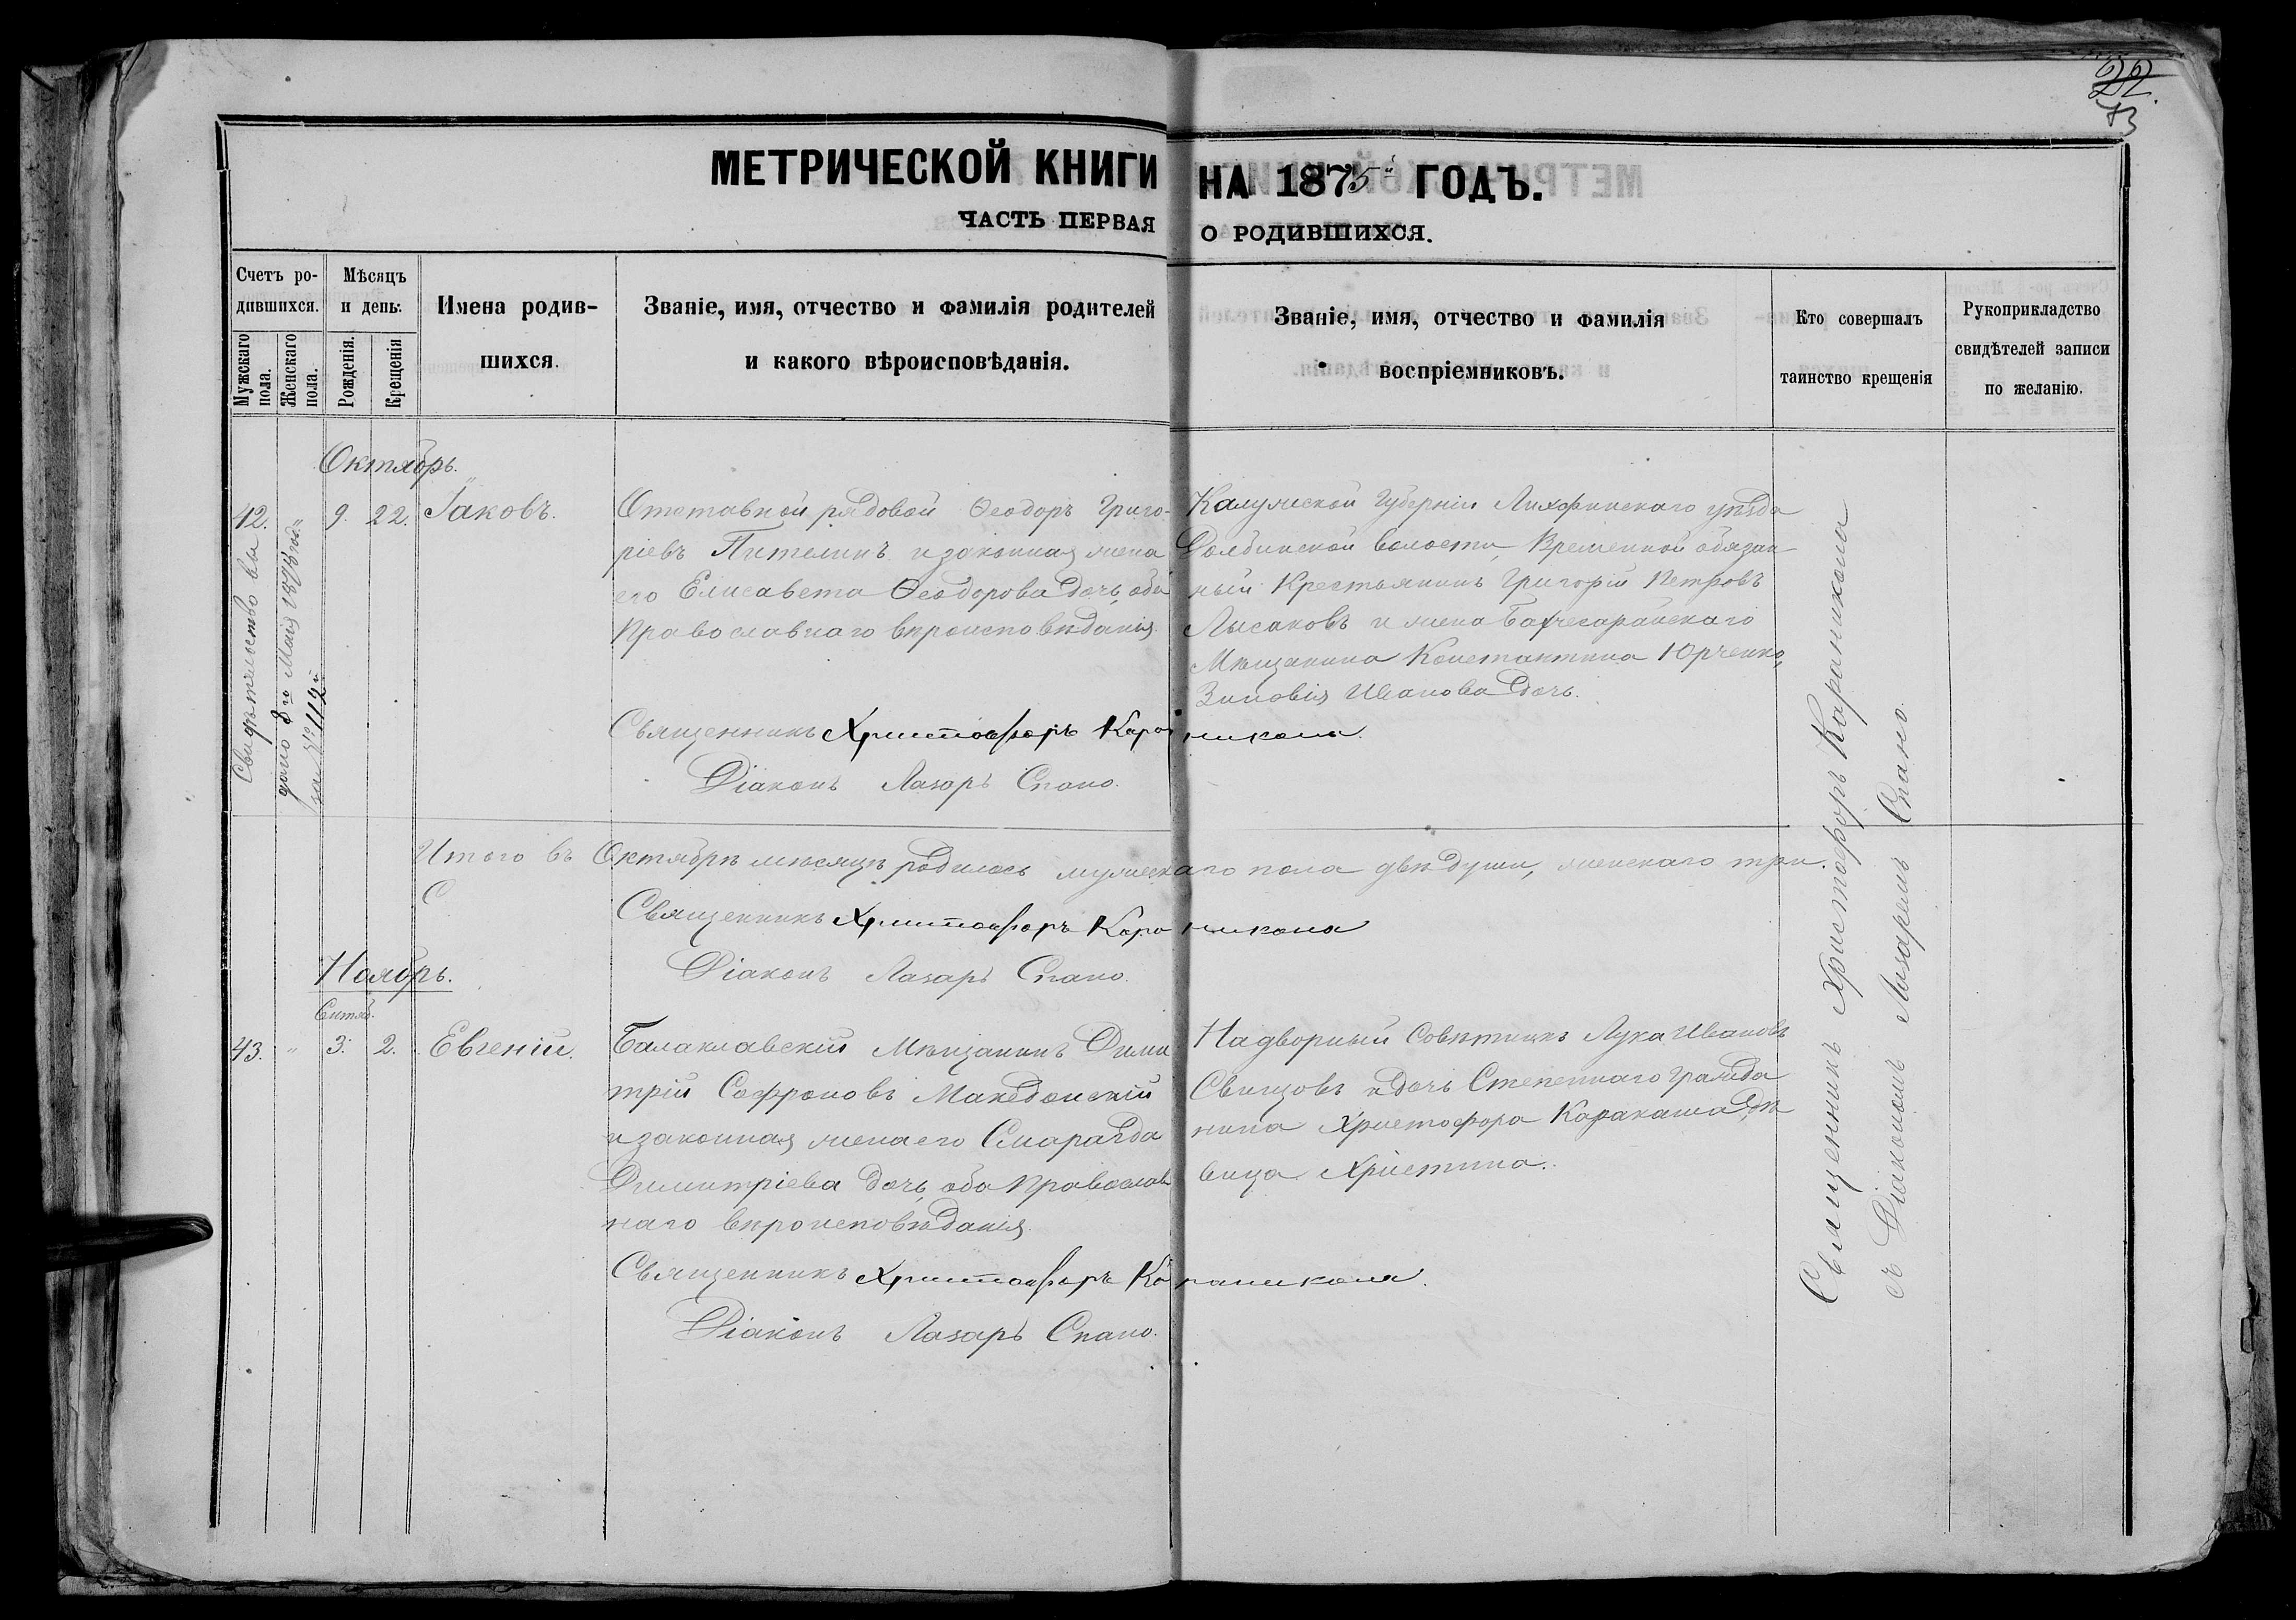 73
МЕТРИЧЕСКОЙ КНИГИ НА 1875й ГОДЪ.
ЧАСТЬ ПЕРВАЯ О РОДИВШИХСЯ.
Счетъ родившихся.
Мужскаго пола.
Женскаго пола.
Мѣсяцъ и день:
Рожденія.
Крещенія
Имена родившихся.
Званіе, имя, отчество и фамилія родителей
и какого вѣроисповѣданія.
Званіе, имя, отчество и фамилія
воспріемниковъ.
Кто совершалъ
таинство крещенія
Рукоприкладство
свидѣтелей записи
по желанію.
Октябрь.
42. 9. 22. Іаковъ.
Отставной рядовой Ѳеодоръ Григо-
ріевъ Пителинъ и законная жена
его Елисавета Ѳеодорова дочь, оба
Православнаго вѣроисповѣданія.
Калужской Губерніи Лихфинскаго уѣзда
Долбинской волости, Временно обязан-
ный Крестьянинъ Григорій Петровъ
Лысаковъ и жена Бахчесарайскаго
Мѣщанина Константина Юрченко,
Зиновія Иванова дочь.
Свидѣтельство
дано 8го Маія 1875 года
за № 112й
Священникъ Христофоръ Караникола.
Діаконъ Лазарь Спано.
Итого въ Октябрѣ мѣсяцѣ родилось мужескаго пола двѣ души, женскаго три.
С
Священникъ Христофоръ Караникола
Діаконъ Лазарь Спано.
Ноябрь.
Сентяб.
43. " 3. 2. Евгеній.
Балаклавскій Мѣщанинъ Дими
трій Софроновъ Македонскій
и законная жена его Смарагда
Димитріева дочь, оба Православ
наго вѣроисповѣданія.
Надворный Совѣтникъ Лука Ивановъ
Свищовъ и дочь Степеннаго Гражда
нина Христофора Каракаша дѣ
вица Христина.
Священникъ Христофоръ Караникола.
Діаконъ Лазарь Спано.
Священникъ Христофоръ Караникола
съ Діакономъ Лазаремъ Спано.